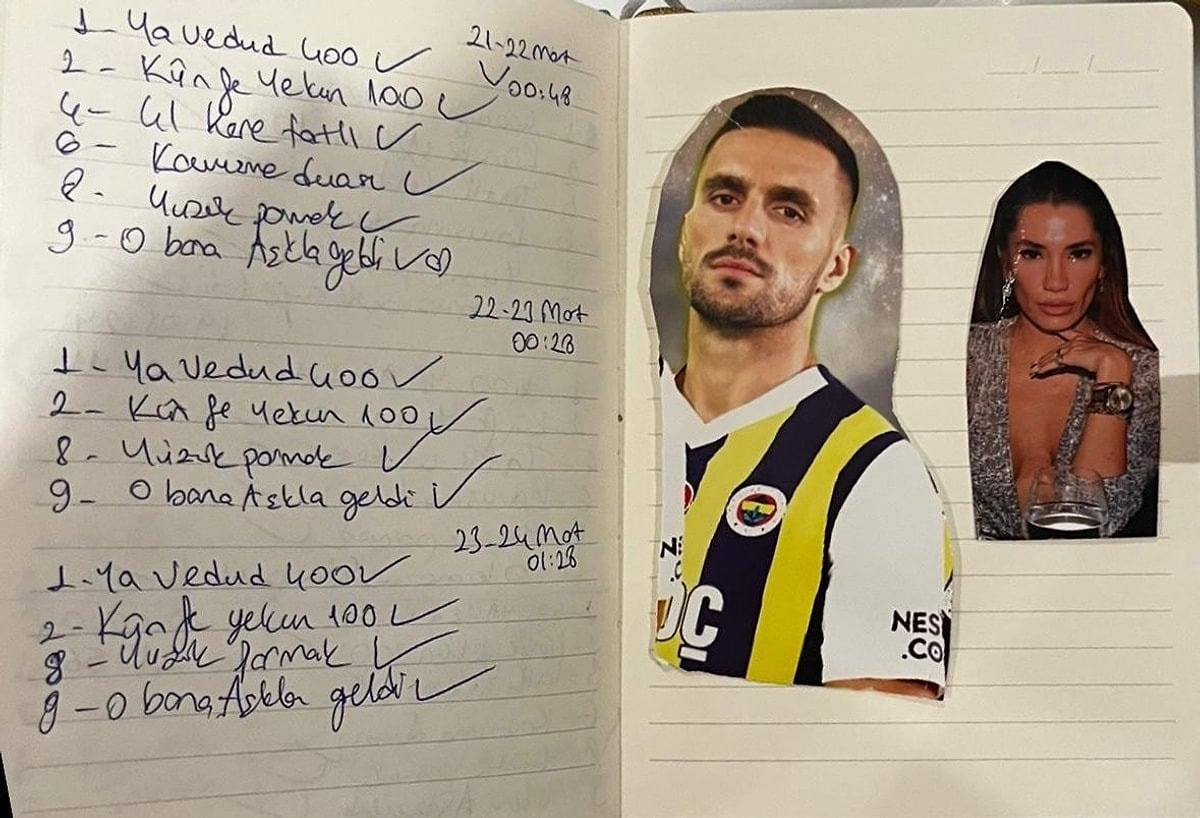 1 Ya Vedud 400 ✓
21-22 Mart
✓ 00:48
2 - Kûn fe Yekun 100 ✓
4 - 41 kere tatlı ✓
6 - Kavuşma duası ✓
8 - Yüzük parmak ✓
9 - O bana Aşkla geldi ✓
22-23 Mart
00:28
1 - Ya Vedud 400 ✓
2 - Kûn fe Yekun 100 ✓
8 - Yüzük parmak ✓
9 - O bana Aşkla geldi ✓
23-24 Mart
01:28
1 - Ya Vedud 400 ✓
2 - Kûn fe yekun 100 ✓
8 - Yüzük parmak ✓
9 - O bana Aşkla geldi ✓
NES
.CO